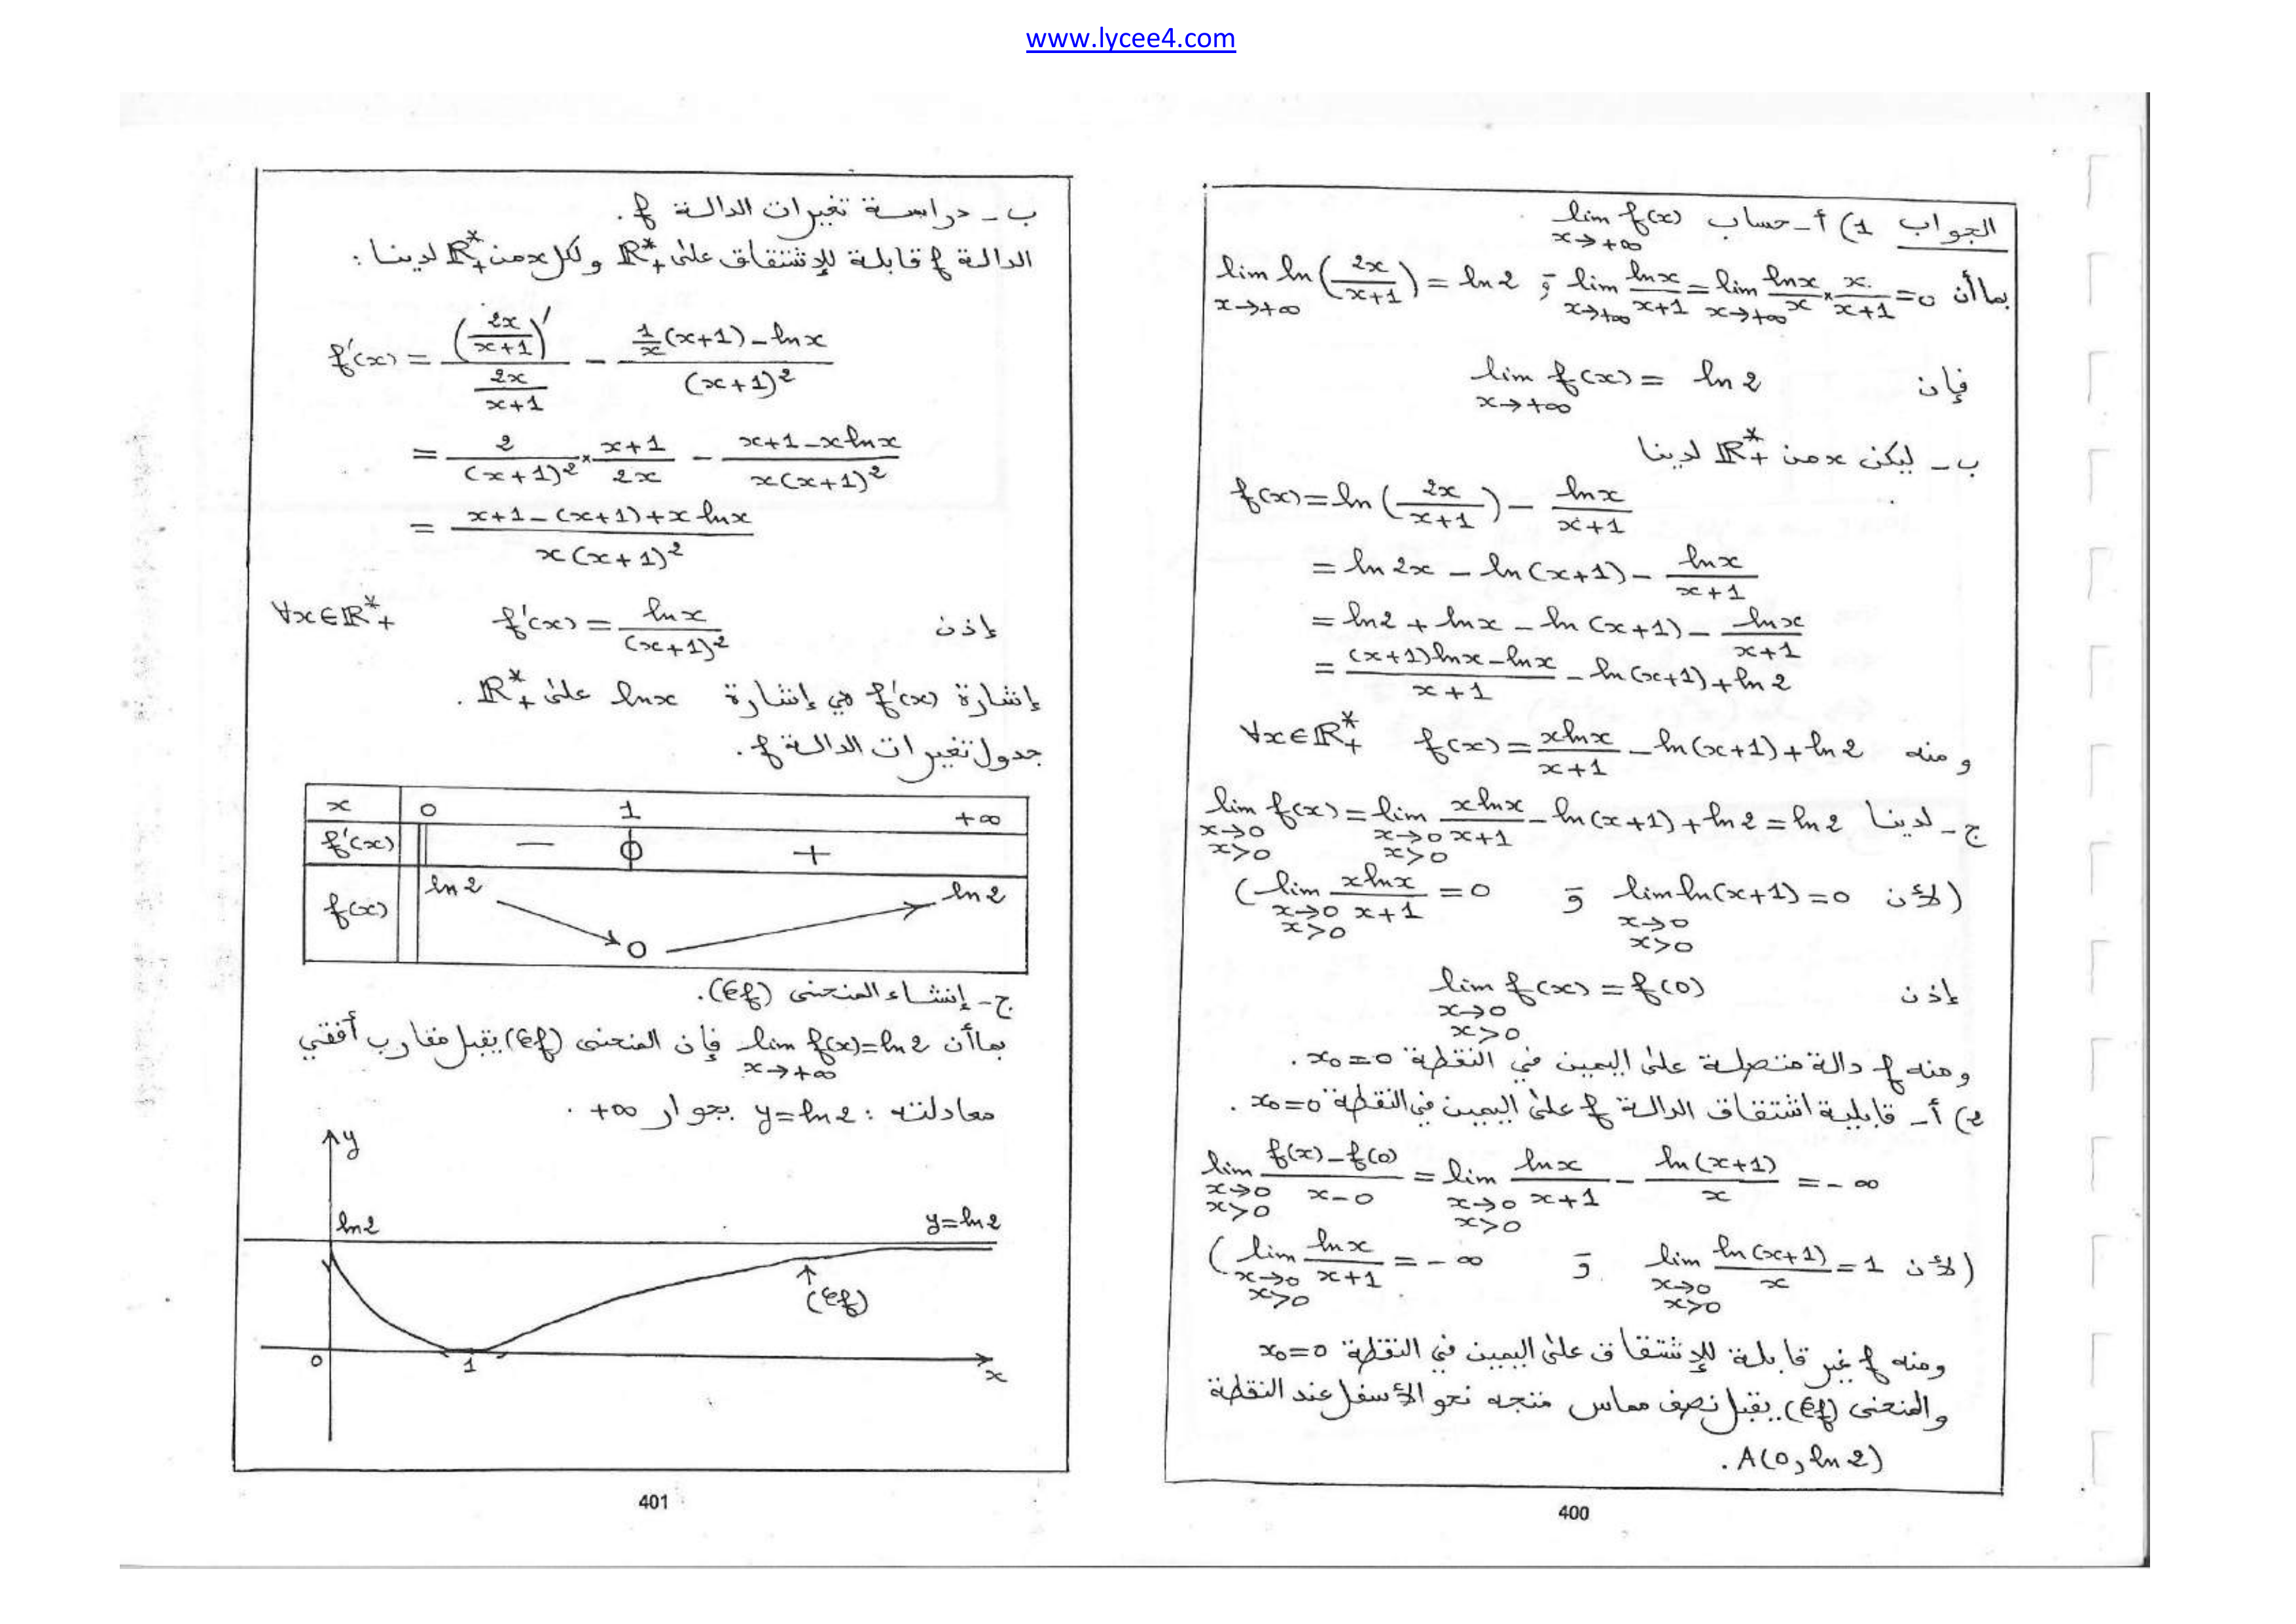 www.lycee4.com
الجواب 1) أ - حساب lim f(x) x→+∞
بما أن lim ln x/(x+1) = lim ln x/x × x/(x+1) = 0 x→+∞ x→+∞ و lim ln(2x/(x+1)) = ln 2 x→+∞
فإن lim f(x) = ln 2 x→+∞
ب - ليكن x من ℝ*₊ لدينا
f(x) = ln(2x/(x+1)) - ln x/(x+1)
= ln 2x - ln(x+1) - ln x/(x+1)
= ln 2 + ln x - ln(x+1) - ln x/(x+1)
= ((x+1)ln x - ln x)/(x+1) - ln(x+1) + ln 2
ومنه f(x) = x ln x/(x+1) - ln(x+1) + ln 2 ∀x∈ℝ*₊
ج - لدينا lim f(x) = lim x ln x/(x+1) - ln(x+1) + ln 2 = ln 2 x→0 x>0 x→0 x>0
(لأن lim ln(x+1) = 0 x→0 x>0 و lim x ln x/(x+1) = 0 x→0 x>0)
إذن lim f(x) = f(0) x→0 x>0
ومنه f دالة متصلة على اليمين في النقطة x₀=0.
2) أ - قابلية اشتقاق الدالة f على اليمين في النقطة x₀=0.
lim (f(x)-f(0))/(x-0) = lim ln x/(x+1) - ln(x+1)/x = -∞ x→0 x>0 x→0 x>0
(لأن lim ln(x+1)/x = 1 x→0 x>0 و lim ln x/(x+1) = -∞ x→0 x>0)
ومنه f غير قابلة للإشتقاق على اليمين في النقطة x₀=0
والمنحنى (𝒞f) يقبل نصف مماس متجه نحو الأسفل عند النقطة
A(0, ln 2).
400
ب - دراسة تغيرات الدالة f.
الدالة f قابلة للإشتقاق على ℝ*₊ ولكل x من ℝ*₊ لدينا:
f'(x) = (2x/(x+1))'/(2x/(x+1)) - (1/x (x+1) - ln x)/(x+1)²
= 2/(x+1)² × (x+1)/2x - (x+1-x ln x)/(x(x+1)²)
= (x+1-(x+1)+x ln x)/(x(x+1)²)
إذن f'(x) = ln x/(x+1)² ∀x∈ℝ*₊
إشارة f'(x) هي إشارة ln x على ℝ*₊.
جدول تغيرات الدالة f.
x 0 1 +∞
f'(x) - 0 +
f(x) ln 2 0 ln 2
ج - إنشاء المنحنى (𝒞f).
بما أن lim f(x) = ln 2 x→+∞ فإن المنحنى (𝒞f) يقبل مقارب أفقي
معادلته: y = ln 2 بجوار +∞.
y
ln 2 y = ln 2
(𝒞f)
0 1 x
401